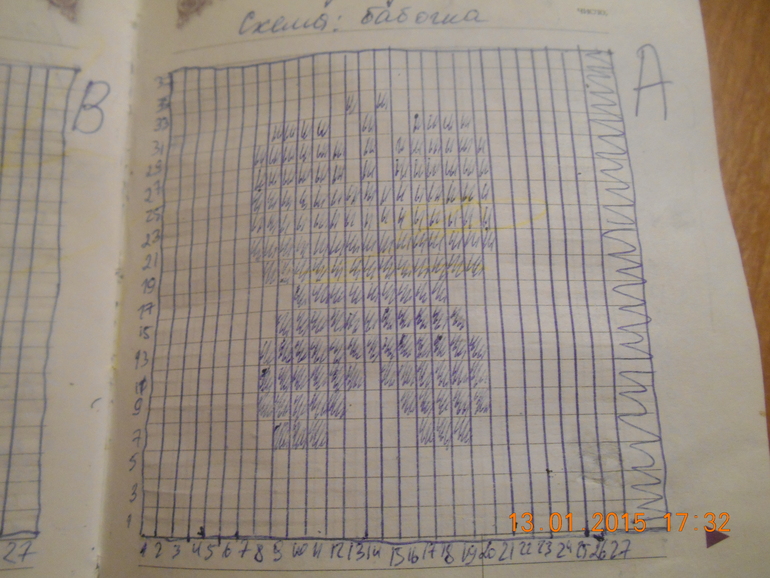 Схема: бабочка
В
А
29
27
25
23
21
19
17
15
13
11
9
7
5
3
1
27
1 2 3 4 5 6 7 8 9 10 11 12 13 14 15 16 17 18 19 20 21 22 23 24 25 26 27
13.01.2015 17:32